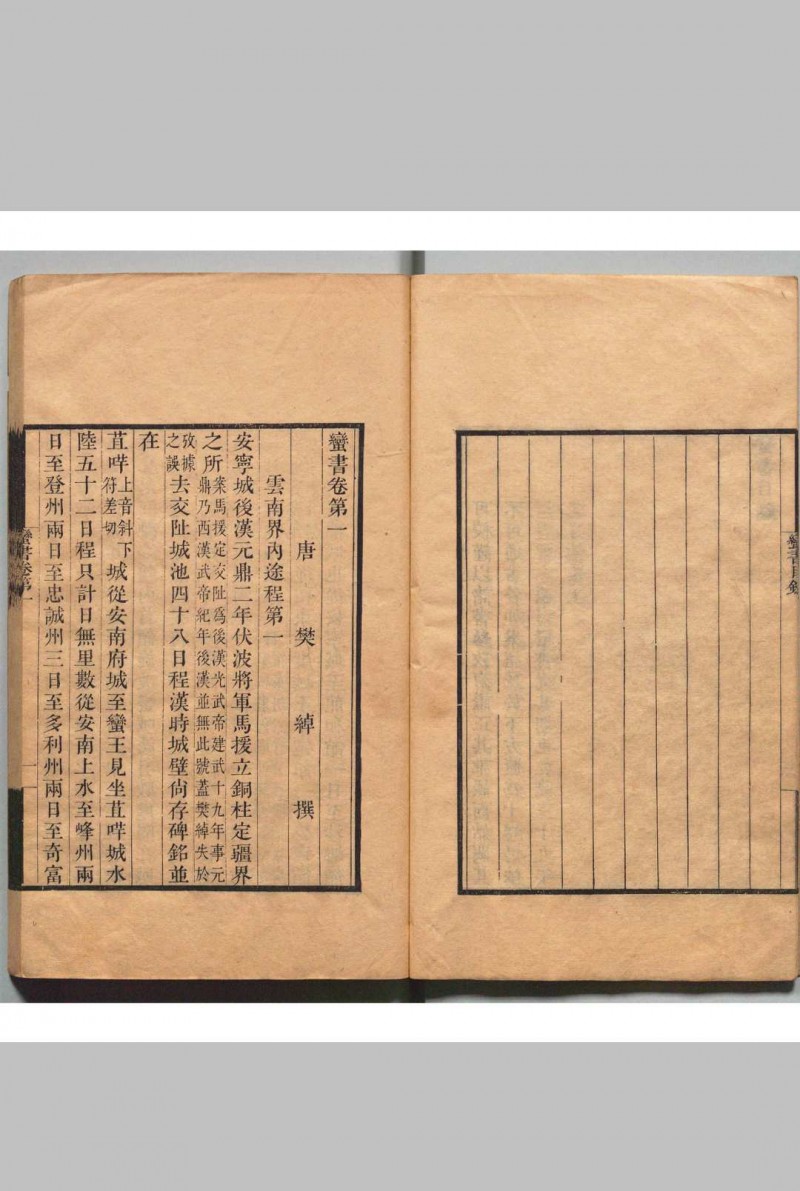 蠻書目錄
蠻書卷第一
唐 樊 綽 撰
雲南界內途程第一
安寧城後漢元鼎二年伏波將軍馬援立銅柱定疆界
之所案馬援定交阯爲後漢光武帝建武十九年事元鼎乃西漢武帝紀年後漢並無此號蓋樊綽失於
攷據之誤去交阯城池四十八日程漢時城壁尙存碑銘並
在
苴哶上音斜下符差切城從安南府城至蠻王見坐苴哶城水
陸五十二日程只計日無里數從安南上水至峰州兩
日至登州兩日至忠誠州三日至多利州兩日至奇富
蠻書卷第一
一